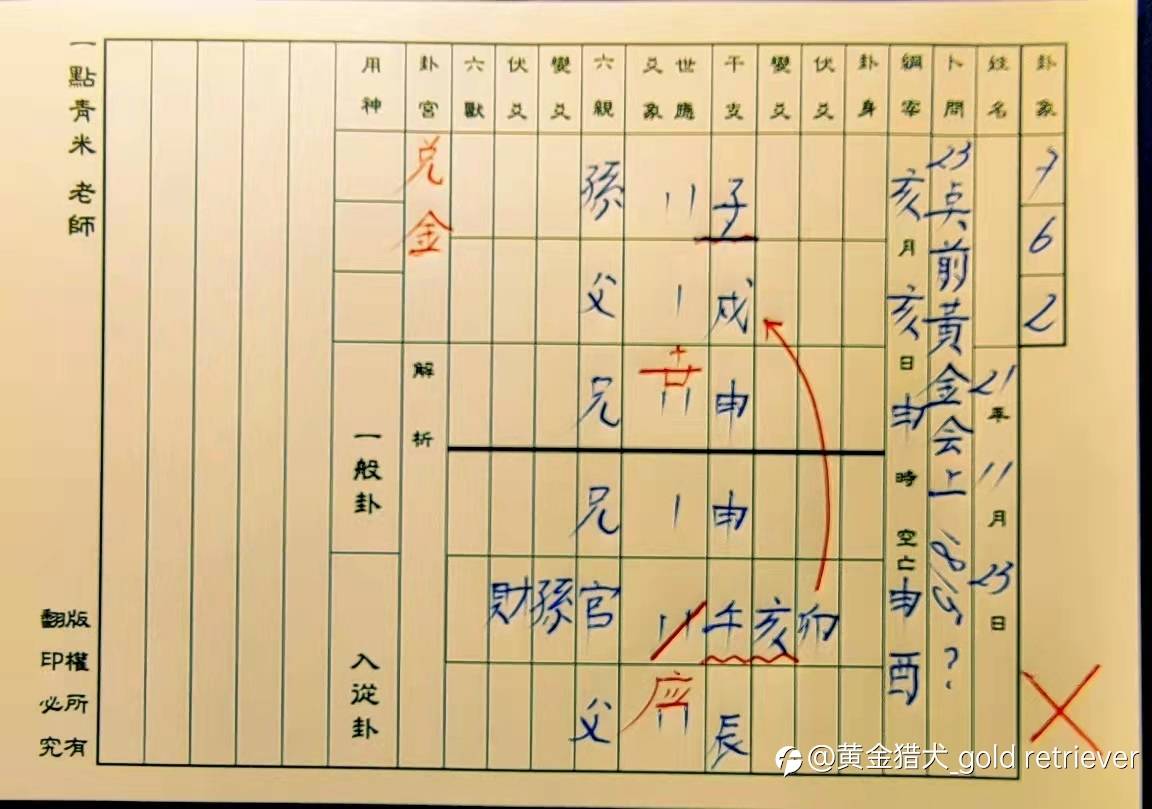 卦象 7 6 2
姓名 21年11月23日
卜問 23点前黃金会上 ?
綱宰 亥月亥日申時空亡申酉
卦身
伏爻 卯
變爻 亥
干支 子 戌 申 申 午 辰
世應
爻象 世 应
六親 孫 父 兄 兄 官 父
變爻 孫
伏爻 財
六獸
卦宮 兑金 解析
用神 一般卦 入從卦
一點青米 老師
版權所有
翻印必究
@黄金猎犬_gold retriever